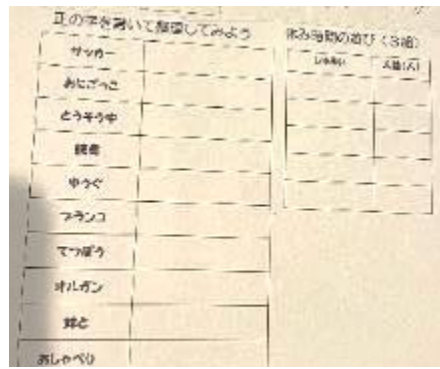 正の字を書いて整理してみよう
サッカー
おにごっこ
とうそう中
読書
ゆうぐ
ブランコ
てつぼう
オルガン
おしゃべり
休み時間の遊び（3組）
しゅるい 人数(人)